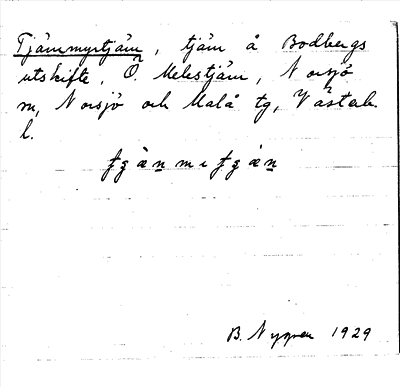 Tjärnmyrtjärn, tjärn å Bodbergs
utskifte, Ö. Melestjärn, Norsjö
sn, Norsjö och Malå tg, Västerb.
l.
B. Nygren 1929